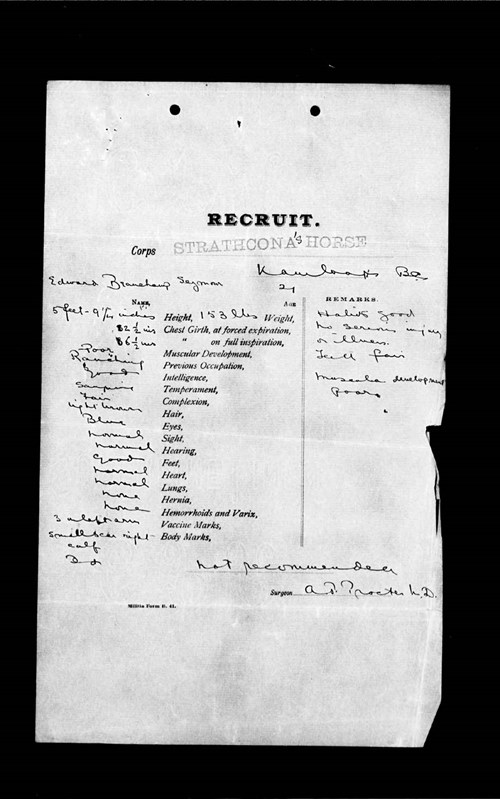 RECRUIT.
Corps STRATHCONA'S HORSE
Kamloops BC
Edward Beauchamp Seymour 21
NAME, AGE REMARKS.
5 feet - 9 1/2 inches Height, 153 lbs Weight, Habits good
32 1/2 ins Chest Girth, at forced expiration, No serious injury
36 1/2 ins " on full inspiration, or illness.
Poor Muscular Development, Teeth fair
Ranching Previous Occupation, Muscular development
Good Intelligence, Poor
Sanguine Temperament,
Fair Complexion,
light brown Hair,
Blue Eyes,
normal Sight,
normal Hearing,
Good Feet,
normal Heart,
normal Lungs,
none Hernia,
none Hemorrhoids and Varix,
3 in left arm Vaccine Marks,
small scar right Body Marks,
calf
not recommended
Surgeon A.P. Procter M.D.
Militia Form B. 41.